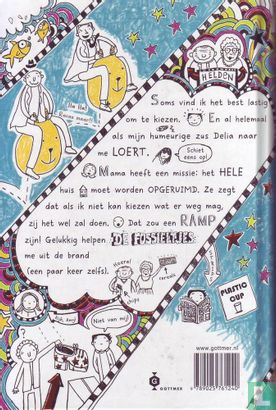 HELDEN
Ha Ha!
Soms vind ik het best lastig
om te kiezen. En al helemaal
als mijn humeurige zus Delia naar
me LOERT.
Schiet
eens op!
Mama heeft een missie: het HELE
huis moet worden OPGERUIMD. Ze zegt
dat als ik niet kan kiezen wat er weg mag,
zij het wel zal doen. Dat zou een RAMP
zijn! Gelukkig helpen DE FOSSIELTJES
me uit de brand
(een paar keer zelfs).
Hoera!
chips
cereals
PLASTIC
CUP
Niet van mij
www.gottmer.nl
GOTTMER
9 789025 761240